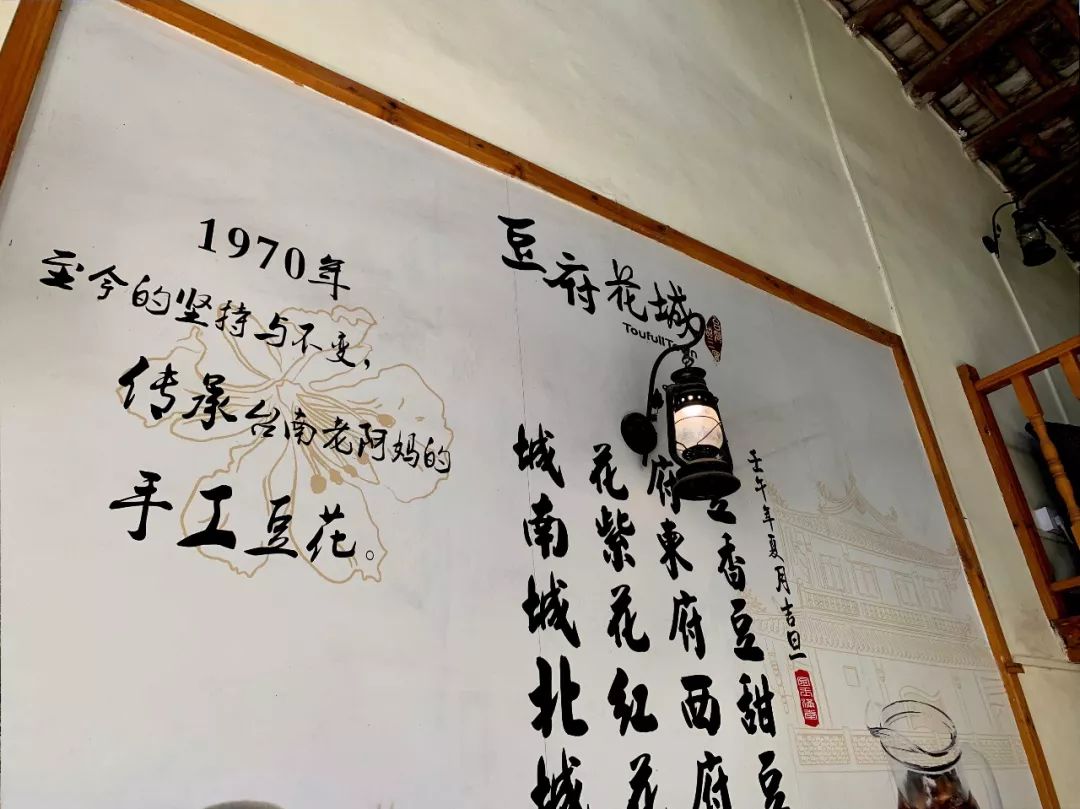 1970年
至今的坚持与不变,
传承台南老阿妈的
手工豆花。
豆府花城
ToufullT
壬午年夏月吉旦
香豆甜豆
府東府西府
花紫花红花
城南城北城